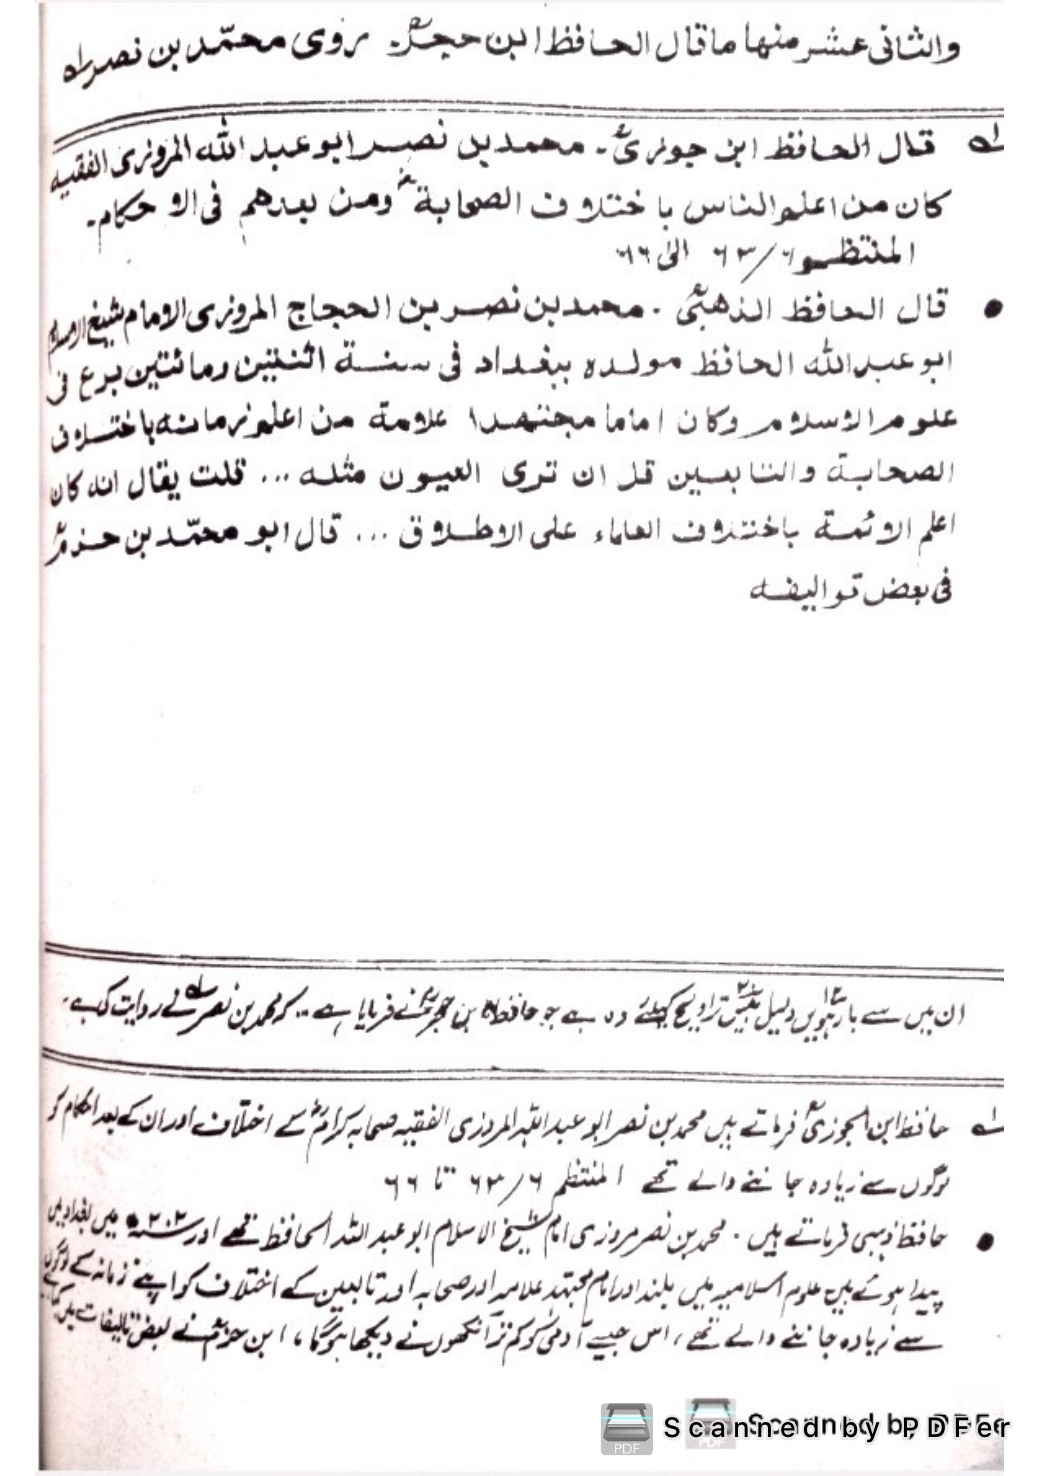 والثانی عشر منها ما قال الحافظ ابن حجرؒ۔ روی محمّد بن نصر لہ
لہ قال الحافظ ابن جوزیؒ۔ محمد بن نصر ابو عبد اللہ المروزی الفقیہ
کان من اعلم الناس باختلاف الصحابة ومن بعدهم فی الاحکام۔
المنتظم ۶/ ۶۳ الی ۶۶
● قال الحافظ الذهبیؒ۔ محمد بن نصر بن الحجاج المروزی الامام شیخ الاسلام
ابو عبد اللہ الحافظ مولدہ ببغداد فی سنة اثنتین ومائتین برع فی
علوم الاسلام وکان اماما مجتهدا علامة من اعلم زمانہ باختلاف
الصحابة والتابعین قل ان تری العیون مثلہ ... قلت یقال انہ کان
اعلم الائمة باختلاف العلماء علی الاطلاق ... قال ابو محمّد بن حزمؒ
فی بعض توالیفہ
ان میں سے بارہویں ۱۲ دلیل بیس ۲۰ تراویح کیلئے وہ ہے جو حافظ ابن حجرؒ نے فرمایا ہے ۔۔ کہ محمد بن نصر لہ نے روایت کی ہے۔
لہ حافظ ابن الجوزیؒ فرماتے ہیں محمد بن نصر ابو عبد اللہ المروزی الفقیہ صحابہ کرامؓ کے اختلاف اور ان کے بعد احکام کو
لوگوں سے زیادہ جاننے والے تھے المنتظم ۶/ ۶۳ تا ۶۶
● حافظ ذہبی فرماتے ہیں۔ محمد بن نصر مروزی امام شیخ الاسلام ابو عبد اللہ الحافظ تھے اور سنہ ۲۰۲ میں بغداد میں
پیدا ہوئے ہیں علوم اسلامیہ میں بلند اور امام مجتہد علامہ اور صحابہ اور تابعین کے اختلاف کو اپنے زمانہ کے لوگوں
سے زیادہ جاننے والے تھے، اس جیسے آدمی کو کم تر آنکھوں نے دیکھا ہوگا، ابن حزمؒ نے بعض تالیفات میں
Scanned by PDFer